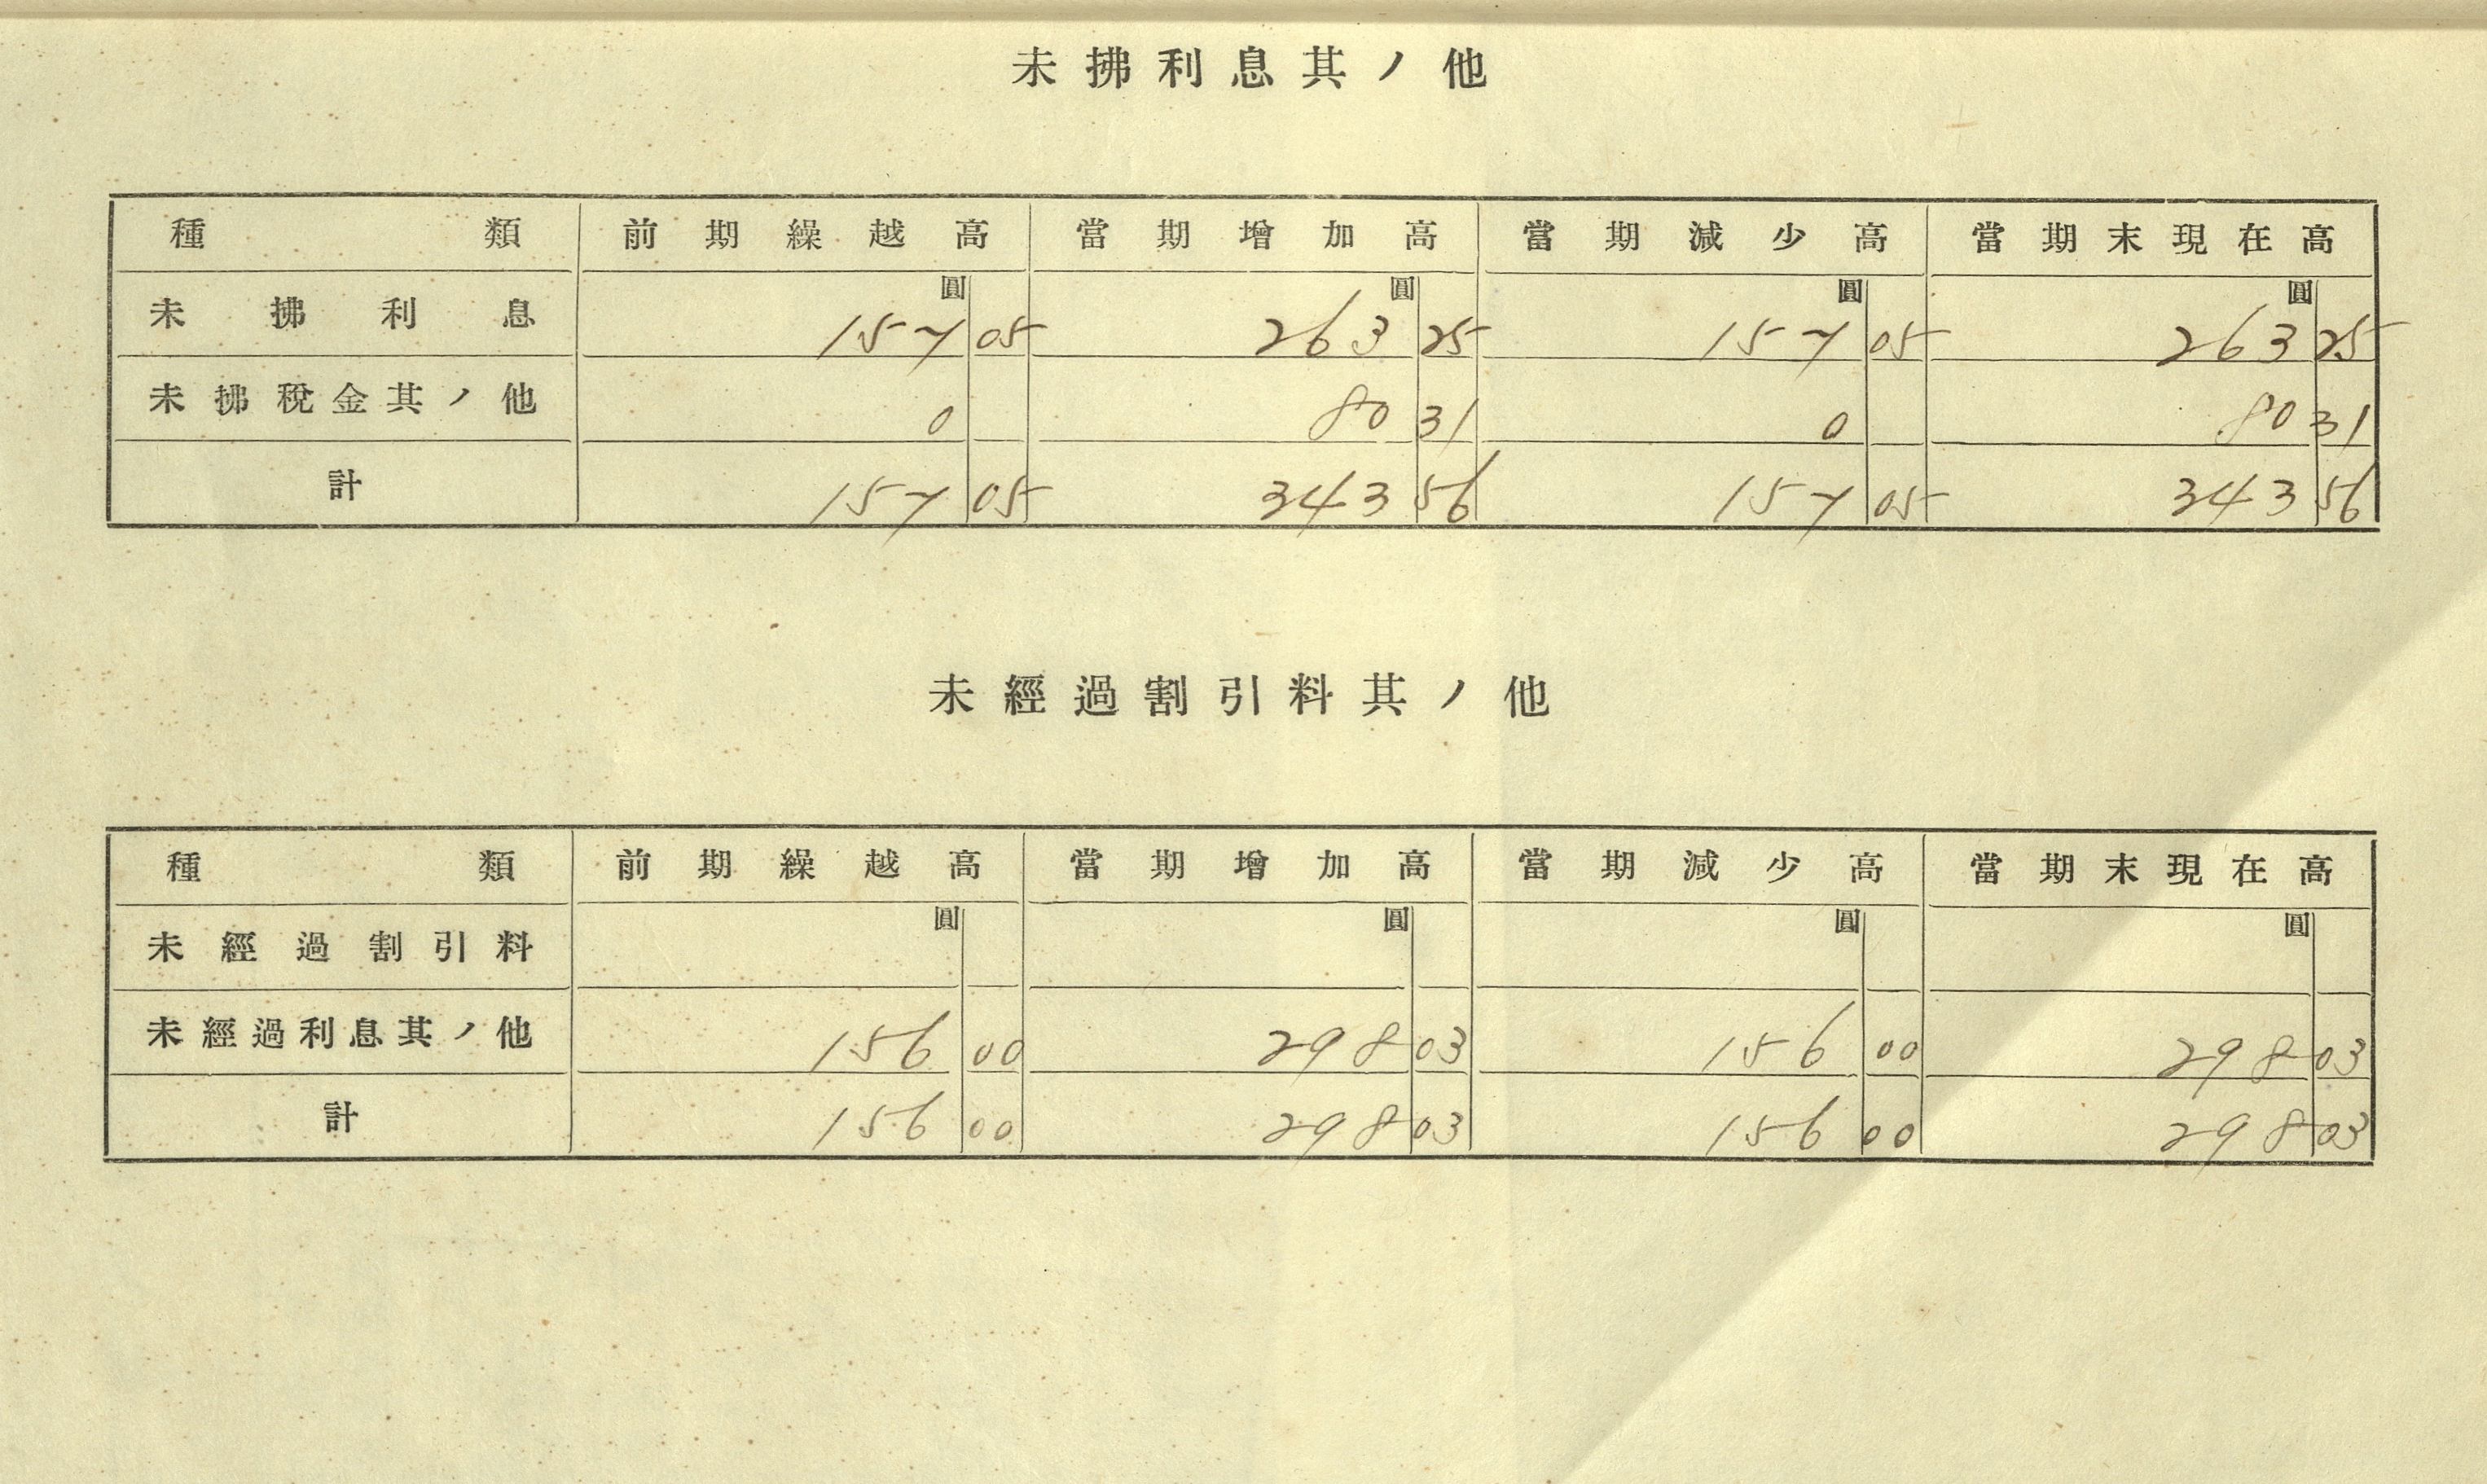 未拂利息其ノ他
種類 前期繰越高 當期增加高 當期減少高 當期末現在高
圓 圓 圓 圓
未拂利息 157 05 263 25 157 05 263 25
未拂稅金其ノ他 0 80 31 0 80 31
計 157 05 343 56 157 05 343 56
未經過割引料其ノ他
種類 前期繰越高 當期增加高 當期減少高 當期末現在高
圓 圓 圓 圓
未經過割引料
未經過利息其ノ他 156 00 298 03 156 00 298 03
計 156 00 298 03 156 00 298 03